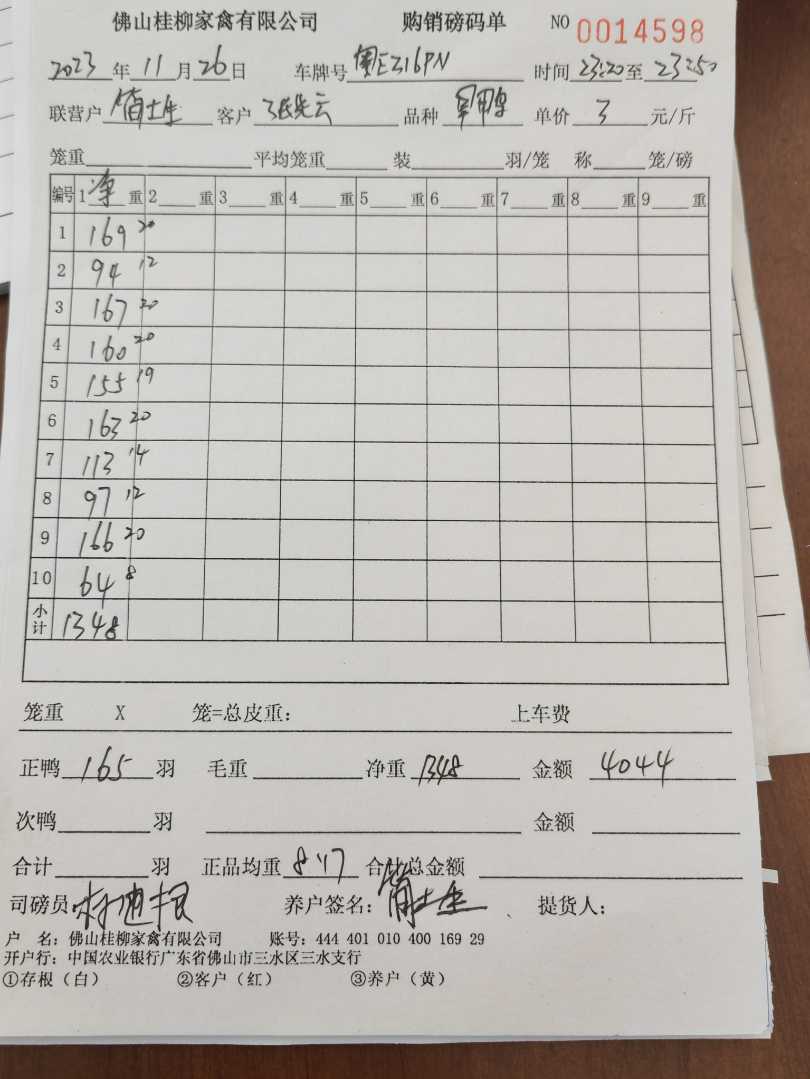 佛山桂柳家禽有限公司 购销磅码单 NO 0014598
2023年11月26日 车牌号 粤E316PN 时间23:20至23:50
联营户 简士生 客户 张先云 品种 单价 3 元/斤
笼重 平均笼重 装 羽/笼 称 笼/磅
编号 1 净 重 2 重 3 重 4 重 5 重 6 重 7 重 8 重 9 重
1 169 20
2 94 12
3 167 20
4 160 20
5 155 19
6 163 20
7 113 14
8 97 12
9 166 20
10 64 8
小计 1348
笼重 X 笼=总皮重: 上车费
正鸭 165 羽 毛重 净重 1348 金额 4044
次鸭 羽 金额
合计 羽 正品均重 8.17 合计总金额
司磅员: 养户签名: 简士生 提货人:
户 名: 佛山桂柳家禽有限公司 账号: 444 401 010 400 169 29
开户行: 中国农业银行广东省佛山市三水区三水支行
①存根（白） ②客户（红） ③养户（黄）